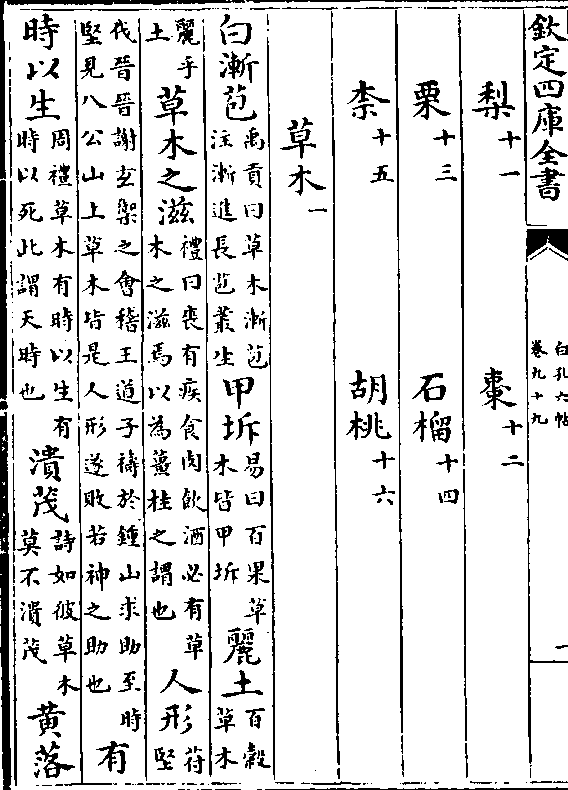 欽定四庫全書 白孔六帖 卷九十九 一
梨十一 棗十二
栗十三 石榴十四
柰十五 胡桃十六
草木一
白漸苞 禹貢曰草木漸苞注漸進長苞叢生 甲坼 易曰百果草木皆甲坼 麗土 百穀草木
麗乎土 草木之滋 禮曰喪有疾食肉飲酒必有草木之滋焉以為薑桂之謂也 人形 苻堅
伐晉晉謝玄禦之會稽王道子禱於鍾山求助至時堅見八公山上草木皆是人形遂敗若神之助也 有
時以生 周禮草木有時以生有時以死此謂天時也 潰茂 詩如彼草木莫不潰茂 黃落